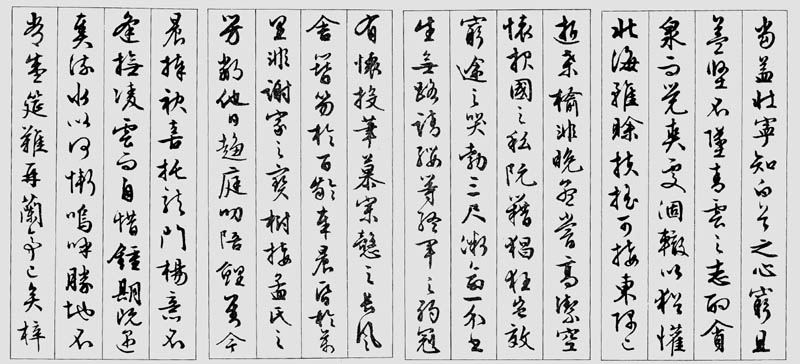 當益壯寧知白首之心窮且
益堅不墜青雲之志酌貪
泉而覺爽處涸轍以猶懽
北海雖賒扶搖可接東隅已
逝桑榆非晚孟嘗高潔空
懷報國之私阮籍猖狂豈效
窮途之哭勃三尺微命一介書
生無路請纓等終軍之弱冠
有懷投筆慕宗慤之長風
舍簪笏於百齡奉晨昏於萬
里非謝家之寶樹接孟氏之
芳鄰他日趨庭叨陪鯉對今
晨捧袂喜托龍門楊意不
逢撫凌雲而自惜鍾期既遇
奏流水以何慚嗚呼勝地不
常盛筵難再蘭亭已矣梓